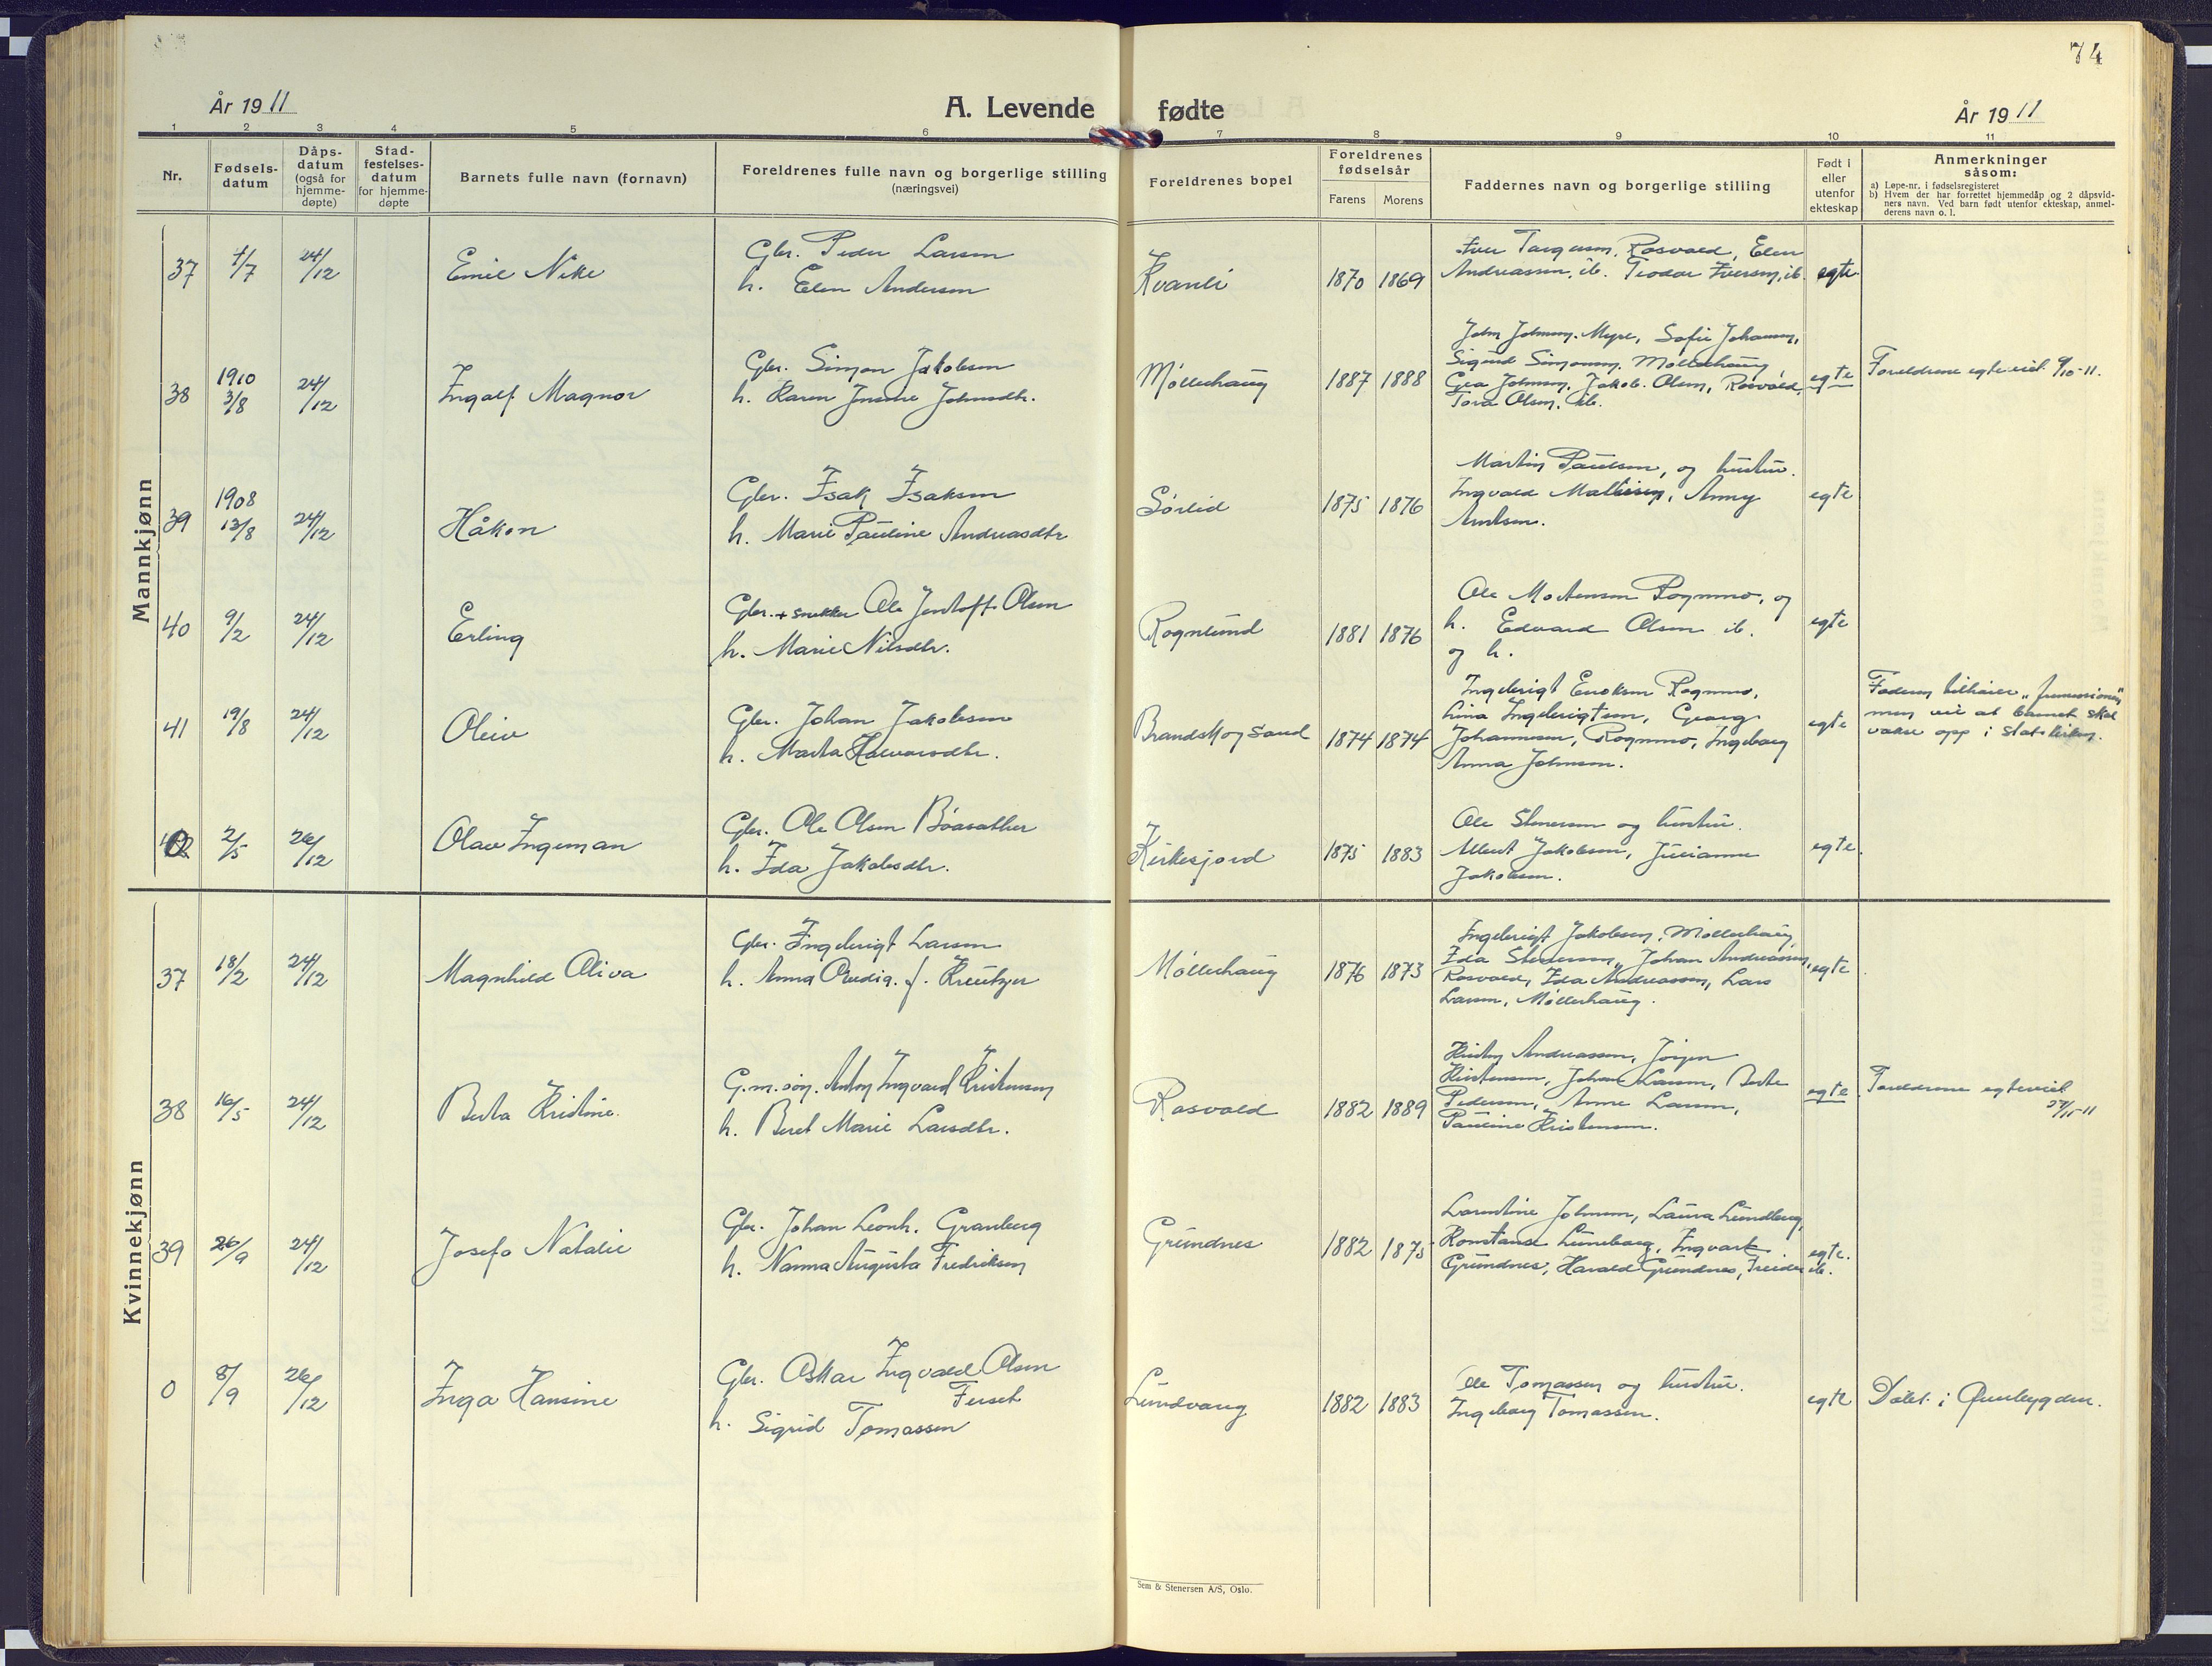 74
År 1911
A. Levende fødte
År 1911
1 2 3 4 5 6 7 8 9 10 11
Nr.
Fødsels-
datum
Dåps-
datum
(også for
hjemme-
døpte)
Stad-
festelses-
datum
for hjemme-
døpte
Barnets fulle navn (fornavn)
Foreldrenes fulle navn og borgerlige stilling
(næringsvei)
Foreldrenes bopel
Foreldrenes
fødselsår
Farens Morens
Faddernes navn og borgerlige stilling
Født i
eller
utenfor
ekteskap
Anmerkninger
såsom:
a) Løpe-nr. i fødselsregisteret
b) Hvem der har forrettet hjemmedåp og 2 dåpsvid-
ners navn. Ved barn født utenfor ekteskap, anmel-
derens navn o. l.
Mannkjønn
37 4/7 24/12 Emil Nike
Gbr. Peder Larsen
h. Elen Andersen
Kvanli 1870 1869
Rosvold, Elen
Andreassen, ib. Teodor Iversen, ib.
egte
38 1910 3/8 24/12 Ingolf Magnor
Gbr. Simon Jakobsen
h. Karen Johnsdtr.
Møllerhaug 1887 1888
John Johnsen Myre, Sofie Johansen,
Sigurd Simonsen, Møllerhaug
Johnsen, Jakob Olsen, Rosvold,
Tora Olsen, ib.
egte
Foreldrene egteviet 9/10-11.
39 1908 13/8 24/12 Håkon
Gbr. Isak Isaksen
h. Marie Pauline Andreasdtr
Sørlid 1875 1876
Martin Paulsen, og hustru.
Ingvald Mathisen, Anny
egte
40 9/2 24/12 Erling
Gbr. + snekker Ole Jentoft Olsen
h. Marie Nilsdtr.
Rognlund 1881 1876
Ole Mortensen Rognmo, og
h. Edvard Olsen ib.
og h.
egte
41 19/8 24/12 Oleiv
Gbr. Johan Jakobsen
h. Marta Halvorsdtr.
Brandskogsand 1874 1874
Ingebrigt Enoksen Rognmo,
Lina Ingebrigtsen, Georg
Johannesen, Rognmo, Ingeborg
Anna Johnsen.
egte
Faderen tilhører
men vil at barnet skal
vokse opp i statskirken.
0 2/5 26/12 Olav Ingeman
Gbr. Ole Olsen Bóasæther
h. Ida Jakobsdtr.
Kirkesjord 1875 1883
Ole Stenersen og hustru.
Albert Jakobsen, Julianne
Jakobsen.
egte.
Kvinnekjønn
37 18/2 24/12 Magnhild Oliva
Gbr. Ingebrigt Larsen
h. Anna Ovedia. f. Kreutzer
Møllerhaug 1876 1873
Ingebrigt Jakobsen, Møllerhaug,
Ida Stenersen, Johan Andreassen,
Rosvold, Ida Andreassen, Lars
Larsen, Møllerhaug.
egte
38 16/5 24/12 Berta Kristine.
G.m.søn. Anton Ingvard Kristensen
h. Beret Marie Larsdtr.
Rosvold 1882 1889
Kristen Andreassen, Jörgen
Kristensen, Johan Larsen, Berte
Pedersen, Anne Larsen,
Pauline Kristensen.
egte.
Foreldrene egteviet
39 26/9 24/12 Josefa Natalie
Gbr. Johan Leonh. Granberg
h. Nanna Augusta Fredriksen
Grundnes 1882 1875
Lorentine Johnsen, Laura Lundberg,
Konstanse Luneborg, Ingvart
Grundnes, Harald Grundnes, ib.
egte.
0 8/9 26/12 Inga Hansine
Gbr. Oskar Ingvald Olsen
Fuset
h. Sigrid Tomassen
Lundvang 1882 1883
Ole Tomassen og hustru.
Ingeborg Tomassen.
egte Døbt i Øverbygden.
Sem & Stenersen A/S, Oslo.